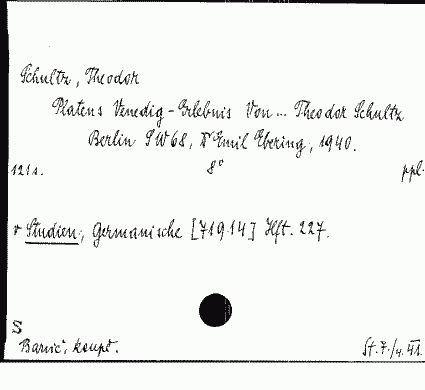 Schultz, Theodor
Platens Venedig-Erlebnis Von... Theodor Schultz
Berlin SW68, Emil Ebering, 1940.
121 s. 8° ppl.
v Studien, Germanische [71914] Hft. 227.
S
Barvič, koupě.